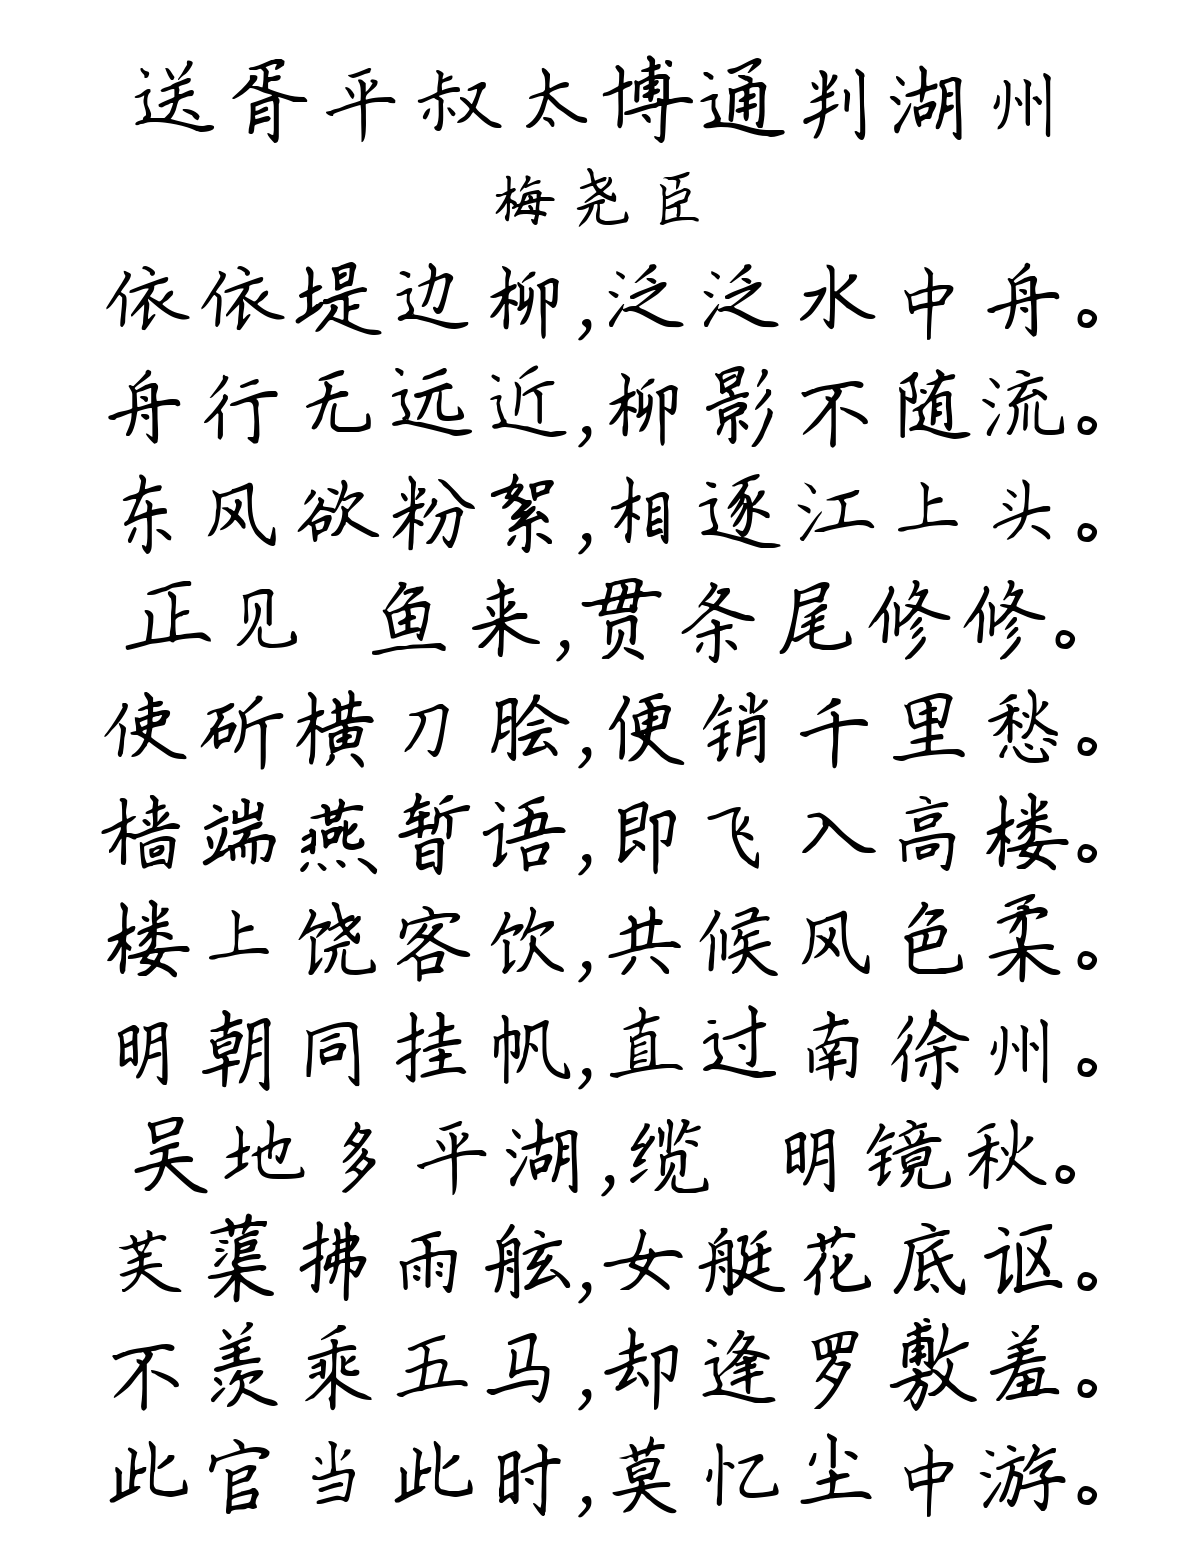 送胥平叔太博通判湖州
梅尧臣
依依堤边柳,泛泛水中舟。
舟行无远近,柳影不随流。
东风欲粉絮,相逐江上头。
正见 鱼来,贯条尾修修。
使斫横刀脍,便销千里愁。
樯端燕暂语,即飞入高楼。
楼上饶客饮,共候风色柔。
明朝同挂帆,直过南徐州。
吴地多平湖,缆 明镜秋。
芙蕖拂雨舷,女艇花底讴。
不羡乘五马,却逢罗敷羞。
此官当此时,莫忆尘中游。